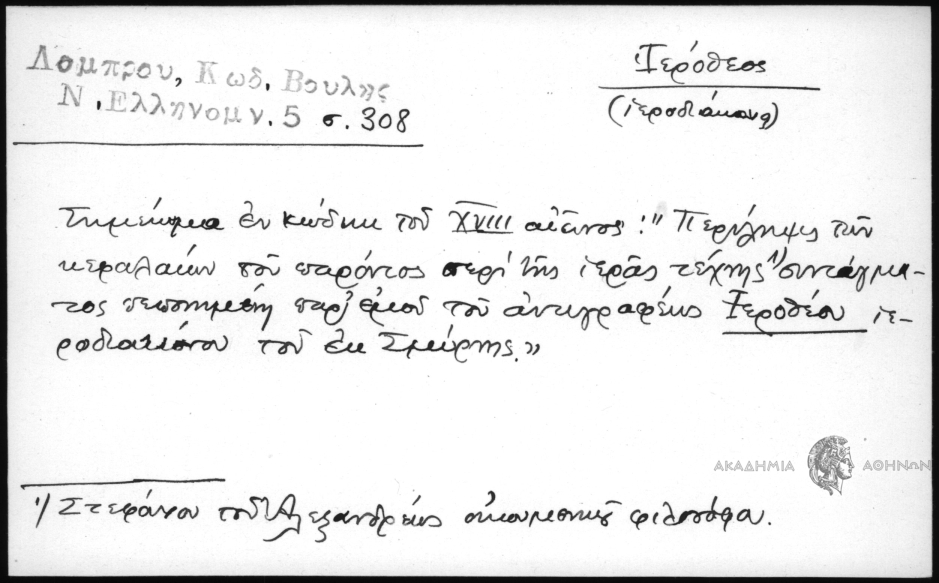 Λομπρου, Κωδ. Βουλης
Ν. Ελληνομν. 5 σ. 308
Ἱερόθεος
(ἱεροδιάκονος)
Σημείωμα ἐν κώδικι τοῦ XVIII αἰῶνος: "Περίληψις τῶν
κεφαλαίων τοῦ παρόντος περὶ τῆς ἱερᾶς τέχνης 1) συντάγμα-
τος πεποιημένη παρ' ἐμοῦ τοῦ ἀντιγραφέως Ἱεροθέου ἱε-
ροδιακόνου τοῦ ἐκ Σμύρνης."
ΑΚΑΔΗΜΙΑ ΑΘΗΝΩΝ
1) Στεφάνου τοῦ Ἀλεξανδρέως οἰκουμενικοῦ φιλοσόφου.